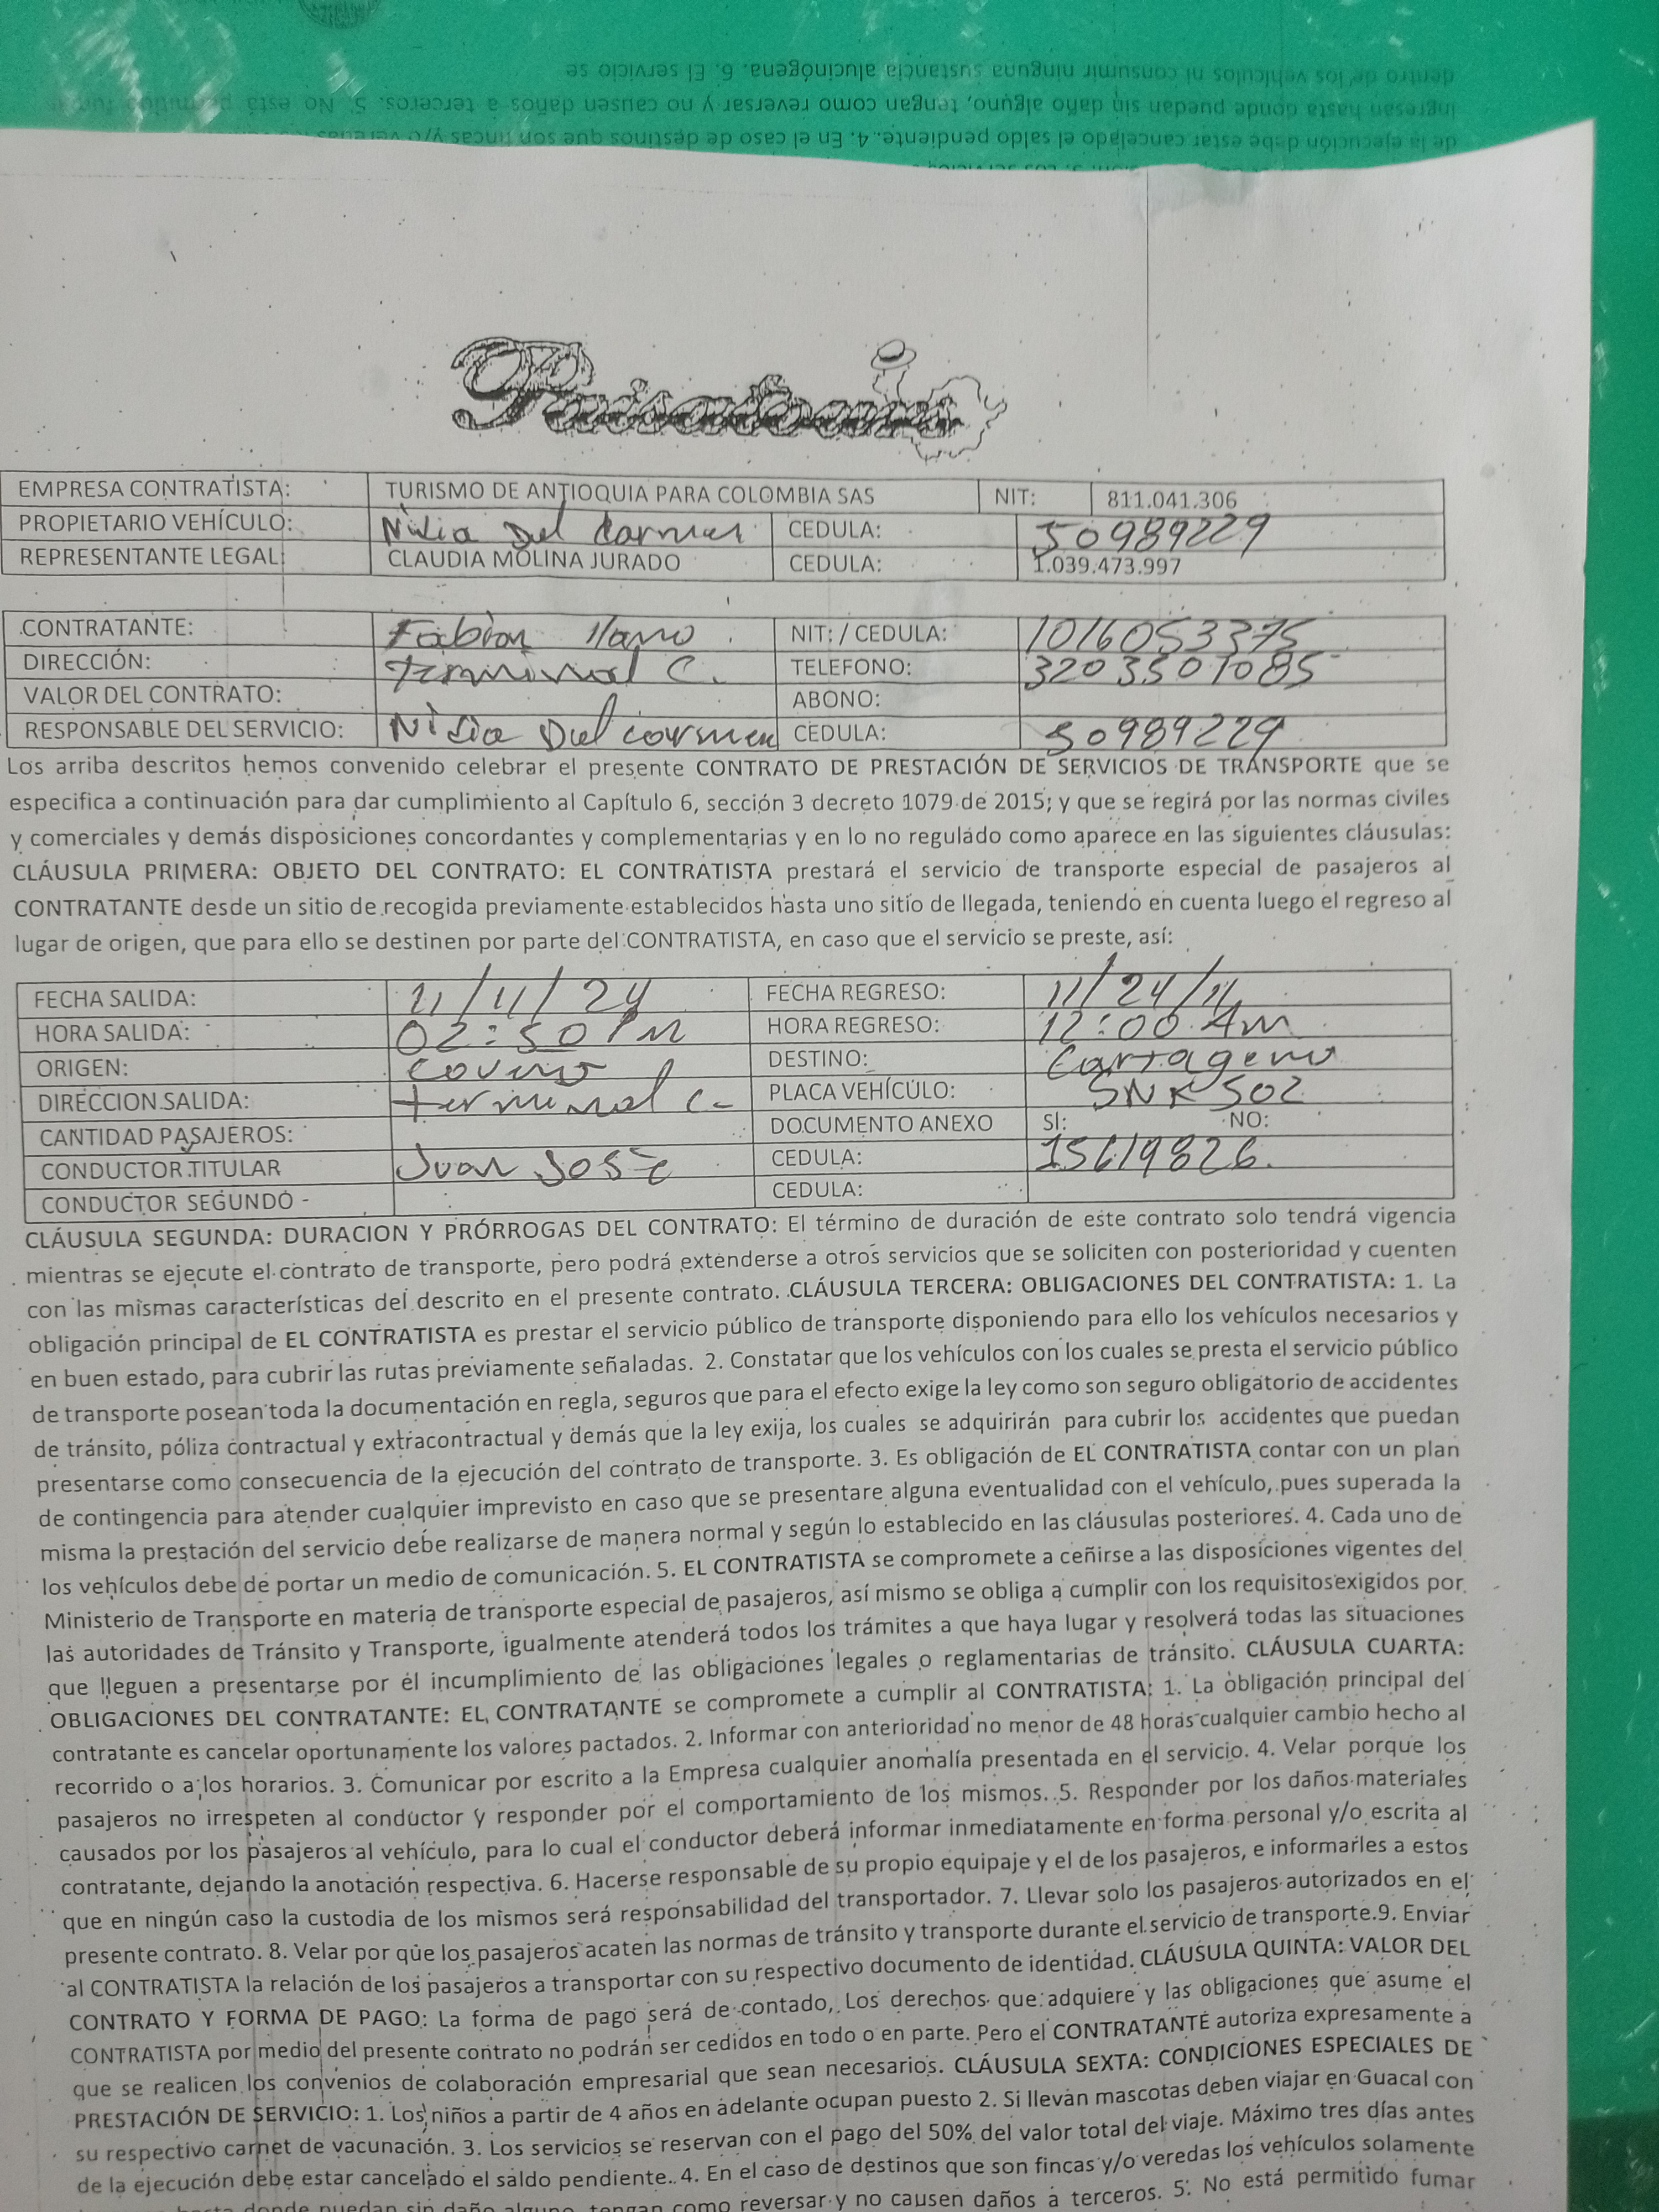 dentro de los vehículos ni consumir ninguna sustancia alucinógena. 6. El servicio se
ingresan hasta donde puedan sin daño alguno, tengan como reversar y no causen daños a terceros. 5. No está permitido
de la ejecución debe estar cancelado el saldo pendiente. 4. En el caso de destinos que son fincas y/o veredas
Paisatrans
EMPRESA CONTRATISTA: TURISMO DE ANTIOQUIA PARA COLOMBIA SAS NIT: 811.041.306
PROPIETARIO VEHÍCULO: Nidia Del Carmen CEDULA: 50989229
REPRESENTANTE LEGAL CLAUDIA MOLINA JURADO CEDULA: 1.039.473.997
CONTRATANTE: Fabian llano NIT: / CEDULA: 1016053375
DIRECCIÓN: terminal C. TELEFONO: 3203501085
VALOR DEL CONTRATO: ABONO:
RESPONSABLE DEL SERVICIO: Nidia Del carmen CEDULA: 50989229
Los arriba descritos hemos convenido celebrar el presente CONTRATO DE PRESTACIÓN DE SERVICIOS DE TRANSPORTE que se
especifica a continuación para dar cumplimiento al Capítulo 6, sección 3 decreto 1079 de 2015; y que se regirá por las normas civiles
y comerciales y demás disposiciones concordantes y complementarias y en lo no regulado como aparece en las siguientes cláusulas:
CLÁUSULA PRIMERA: OBJETO DEL CONTRATO: EL CONTRATISTA prestará el servicio de transporte especial de pasajeros al
CONTRATANTE desde un sitio de recogida previamente establecidos hasta uno sitio de llegada, teniendo en cuenta luego el regreso al
lugar de origen, que para ello se destinen por parte del CONTRATISTA, en caso que el servicio se preste, así:
FECHA SALIDA: 11/11/24 FECHA REGRESO: 11/24/11
HORA SALIDA: 02:50 PM HORA REGRESO: 12:00 Am
ORIGEN: DESTINO: Cartagena
DIRECCION SALIDA: terminal C- PLACA VEHÍCULO: SNK502
CANTIDAD PASAJEROS: DOCUMENTO ANEXO SI: NO:
CONDUCTOR TITULAR Juan José CEDULA: 15619826.
CONDUCTOR SEGUNDO - CEDULA:
CLÁUSULA SEGUNDA: DURACION Y PRÓRROGAS DEL CONTRATO: El término de duración de este contrato solo tendrá vigencia
mientras se ejecute el contrato de transporte, pero podrá extenderse a otros servicios que se soliciten con posterioridad y cuenten
con las mismas características del descrito en el presente contrato. CLÁUSULA TERCERA: OBLIGACIONES DEL CONTRATISTA: 1. La
obligación principal de EL CONTRATISTA es prestar el servicio público de transporte disponiendo para ello los vehículos necesarios y
en buen estado, para cubrir las rutas previamente señaladas. 2. Constatar que los vehículos con los cuales se presta el servicio público
de transporte posean toda la documentación en regla, seguros que para el efecto exige la ley como son seguro obligatorio de accidentes
de tránsito, póliza contractual y extracontractual y demás que la ley exija, los cuales se adquirirán para cubrir los accidentes que puedan
presentarse como consecuencia de la ejecución del contrato de transporte. 3. Es obligación de EL CONTRATISTA contar con un plan
de contingencia para atender cualquier imprevisto en caso que se presentare alguna eventualidad con el vehículo, pues superada la
misma la prestación del servicio debe realizarse de manera normal y según lo establecido en las cláusulas posteriores. 4. Cada uno de
los vehículos debe de portar un medio de comunicación. 5. EL CONTRATISTA se compromete a ceñirse a las disposiciones vigentes del
Ministerio de Transporte en materia de transporte especial de pasajeros, así mismo se obliga a cumplir con los requisitos exigidos por
las autoridades de Tránsito y Transporte, igualmente atenderá todos los trámites a que haya lugar y resolverá todas las situaciones
que lleguen a presentarse por el incumplimiento de las obligaciones legales o reglamentarias de tránsito. CLÁUSULA CUARTA:
OBLIGACIONES DEL CONTRATANTE: EL CONTRATANTE se compromete a cumplir al CONTRATISTA: 1. La obligación principal del
contratante es cancelar oportunamente los valores pactados. 2. Informar con anterioridad no menor de 48 horas cualquier cambio hecho al
recorrido o a los horarios. 3. Comunicar por escrito a la Empresa cualquier anomalía presentada en el servicio. 4. Velar porque los
pasajeros no irrespeten al conductor y responder por el comportamiento de los mismos. 5. Responder por los daños materiales
causados por los pasajeros al vehículo, para lo cual el conductor deberá informar inmediatamente en forma personal y/o escrita al
contratante, dejando la anotación respectiva. 6. Hacerse responsable de su propio equipaje y el de los pasajeros, e informarles a estos
que en ningún caso la custodia de los mismos será responsabilidad del transportador. 7. Llevar solo los pasajeros autorizados en el
presente contrato. 8. Velar por que los pasajeros acaten las normas de tránsito y transporte durante el servicio de transporte.9. Enviar
al CONTRATISTA la relación de los pasajeros a transportar con su respectivo documento de identidad. CLÁUSULA QUINTA: VALOR DEL
CONTRATO Y FORMA DE PAGO: La forma de pago será de contado, Los derechos que adquiere y las obligaciones que asume el
CONTRATISTA por medio del presente contrato no podrán ser cedidos en todo o en parte. Pero el CONTRATANTE autoriza expresamente a
que se realicen los convenios de colaboración empresarial que sean necesarios. CLÁUSULA SEXTA: CONDICIONES ESPECIALES DE
PRESTACIÓN DE SERVICIO: 1. Los niños a partir de 4 años en adelante ocupan puesto 2. Si llevan mascotas deben viajar en Guacal con
su respectivo carnet de vacunación. 3. Los servicios se reservan con el pago del 50% del valor total del viaje. Máximo tres días antes
de la ejecución debe estar cancelado el saldo pendiente. 4. En el caso de destinos que son fincas y/o veredas los vehículos solamente
hasta donde puedan sin daño alguno, tengan como reversar y no causen daños a terceros. 5. No está permitido fumar